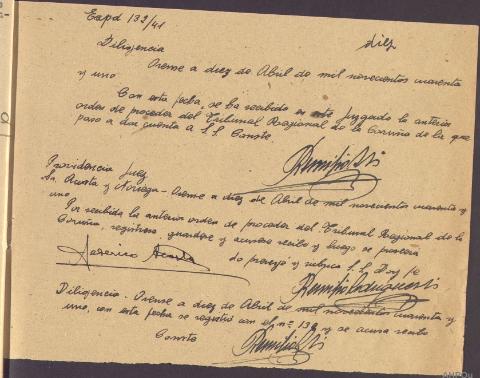 Expd 132/41
diez
Diligencia
Orense a diez de Abril de mil novecientos cuarenta
y uno
Con esta fecha, se ha recibido en este Juzgado la anterior
orden de proceder del Tribunal Regional de la Coruña de la que
paso a dar cuenta a S.S. Conste.
Providencia Juez
Sr. Acosta y Noriega - Orense a diez de Abril de mil novecientos cuarenta y
uno
Por recibida la anterior orden de proceder del Tribunal Regional de la
Coruña, registrese, guardese y acusese recibo y luego se
Lo proveyó y rubrica S.S. Doy fe
Federico Acosta
Diligencia. Orense a diez de Abril de mil novecientos cuarenta y
uno, con esta fecha se registró con el nº 132 y se acusa recibo
Conste